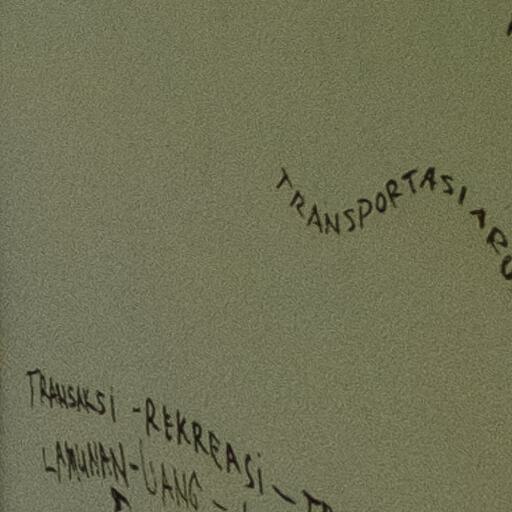 TRANSPORTASI ARU
TRANSAKSi - REKREASi - TR
LAMUNAN - UANG -